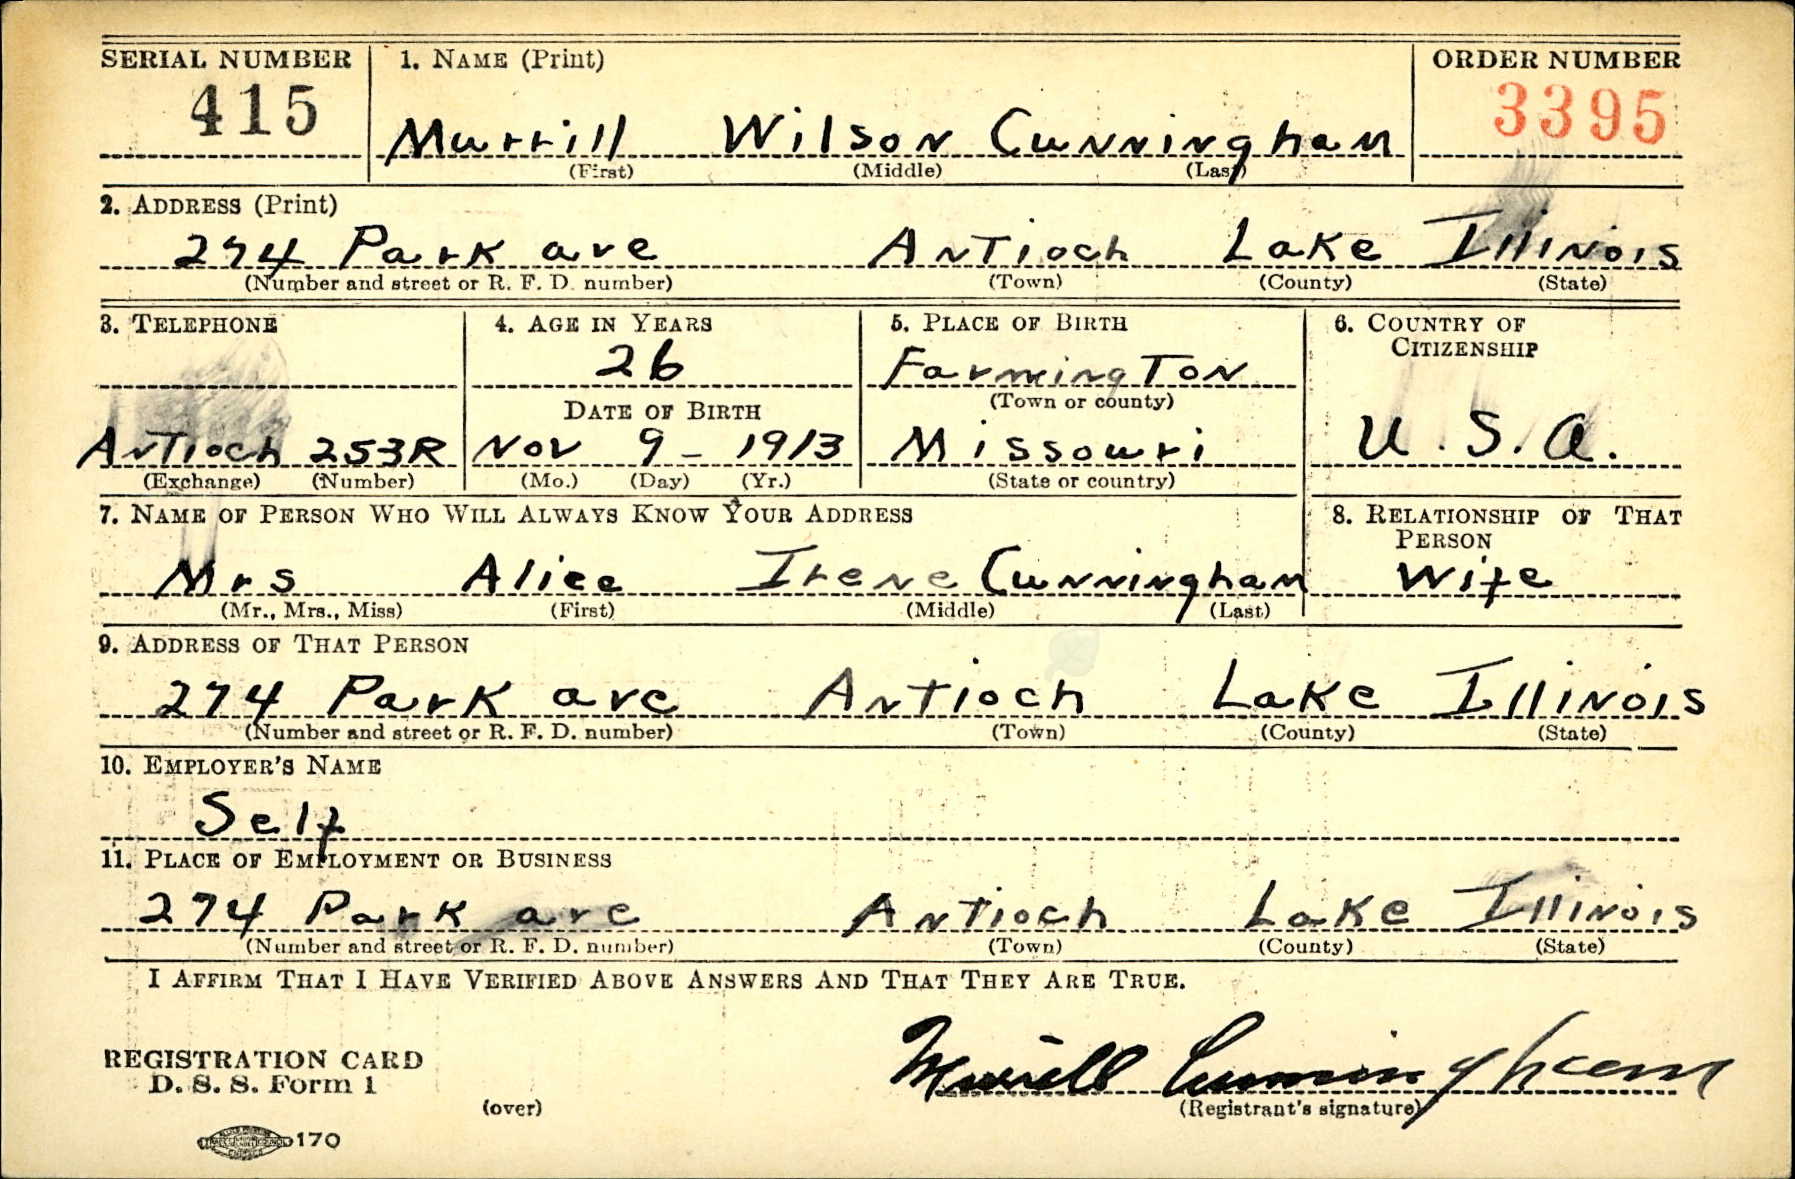 SERIAL NUMBER 1. NAME (Print) ORDER NUMBER
415 Murrill Wilson Cunningham 3395
(First) (Middle) (Last)
2. ADDRESS (Print)
274 Park ave Antioch Lake Illinois
(Number and street or R. F. D. number) (Town) (County) (State)
3. TELEPHONE 4. AGE IN YEARS 5. PLACE OF BIRTH 6. COUNTRY OF
CITIZENSHIP
26 Farmington
DATE OF BIRTH (Town or county)
Antioch 253R Nov 9 - 1913 Missouri U.S.A.
(Exchange) (Number) (Mo.) (Day) (Yr.) (State or country)
7. NAME OF PERSON WHO WILL ALWAYS KNOW YOUR ADDRESS 8. RELATIONSHIP OF THAT
PERSON
Mrs Alice Irene Cunningham Wife
(Mr., Mrs., Miss) (First) (Middle) (Last)
9. ADDRESS OF THAT PERSON
274 Park ave Antioch Lake Illinois
(Number and street or R. F. D. number) (Town) (County) (State)
10. EMPLOYER'S NAME
Self
11. PLACE OF EMPLOYMENT OR BUSINESS
274 Park ave Antioch Lake Illinois
(Number and street or R. F. D. number) (Town) (County) (State)
I AFFIRM THAT I HAVE VERIFIED ABOVE ANSWERS AND THAT THEY ARE TRUE.
REGISTRATION CARD
D. S. S. Form 1 Murrill Cunningham
(over) (Registrant's signature)
170